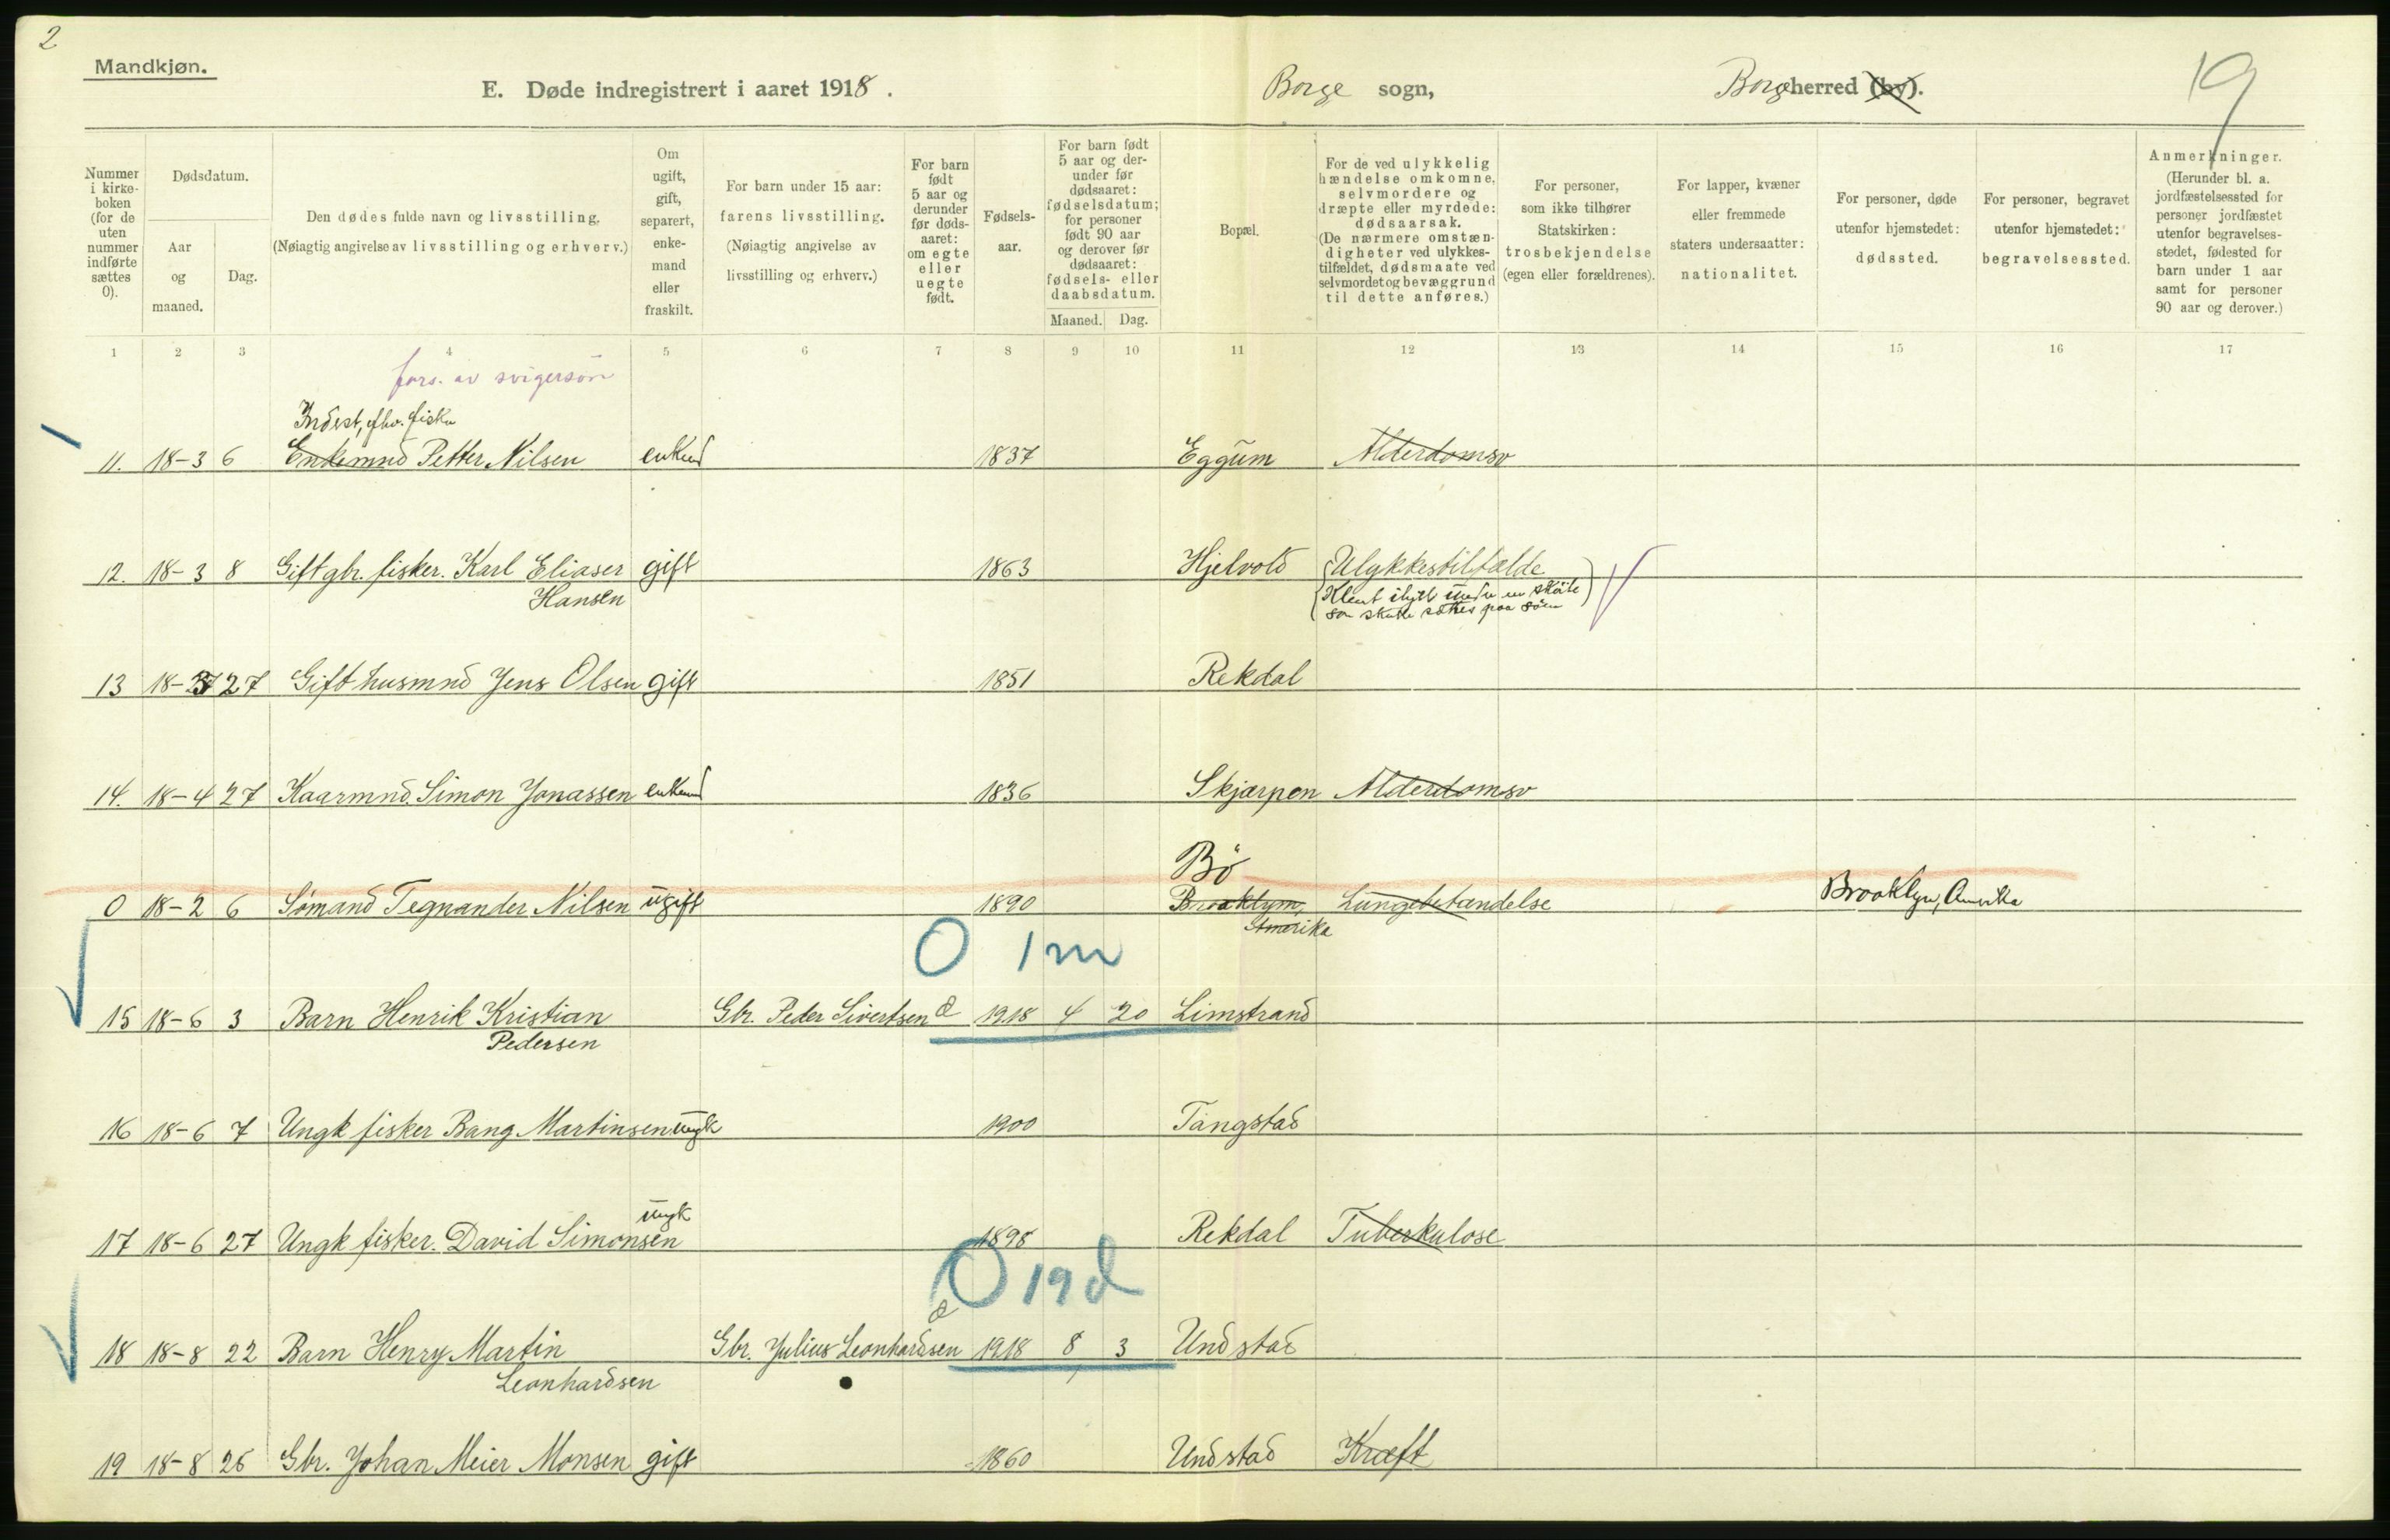 2
Mandkjøn.
E. Døde indregistrert i aaret 1918.
Borge sogn,
Borge herred (by).
19
Nummer i kirke-boken (for de uten nummer indførte sættes 0).
Dødsdatum.
Aar og maaned.
Dag.
Den dødes fulde navn og livsstilling.
(Nøiagtig angivelse av livsstilling og erhverv.)
Om ugift, gift, separert, enke-mand eller fraskilt.
For barn under 15 aar: farens livsstilling. (Nøiagtig angivelse av livsstilling og erhverv.)
For barn født 5 aar og derunder før døds-aaret: om egte eller uegte født.
Fødsels-aar.
For barn født 5 aar og der-under før dødsaaret: fødselsdatum; for personer født 90 aar og derover før dødsaaret: fødsels- eller daabsdatum.
Maaned. Dag.
Bopæl.
For de ved ulykkelig hændelse omkomne, selvmordere og dræpte eller myrdede: dødsaarsak. (De nærmere omstæn-digheter ved ulykkes-tilfældet, dødsmaate ved selvmordet og bevæggrund til dette anføres.)
For personer, som ikke tilhører Statskirken: trosbekjendelse (egen eller forældrenes).
For lapper, kvæner eller fremmede staters undersaatter: nationalitet.
For personer, døde utenfor hjemstedet: dødssted.
For personer, begravet utenfor hjemstedet: begravelsessted.
Anmerkninger. (Herunder bl. a. jordfæstelsessted for personer jordfæstet utenfor begravelses-stedet, fødested for barn under 1 aar samt for personer 90 aar og derover.)
1 2 3 4 5 6 7 8 9 10 11 12 13 14 15 16 17
fors. av svigersøn
Inderst, fhv. fisker
11. 18-3 6 Enkemnd Petter Nilsen enkemd 1837 Eggum Alderdomsv
12. 18-3 8 Gift gbr. fisker. Karl Eliaser gift 1863 Hjelvold Ulykkestilfælde
Hansen
Klemt ihjel under en skøite
som skulde sættes paa sjøen
13 18-3 27 Gift husmnd Jens Olsen gift 1851 Rekdal
14. 18-4 27 Kaarmnd. Simon Jonassen enkemd 1836 Skjærpen Alderdomsv
Bö
0 18-2 6 Sømand Tegnander Nilsen ugift 1890 Brooklym, Lungebetændelse Brooklyn, Amerika
Amerika
0 1 m
15 18-6 3 Barn Henrik Kristian Gbr. Peder Sivertsen e 1918 4 20 Limstrand
Pedersen
16 18-6 7 Ungk fisker Bang Martinsen ungk 1900 Tangstad
ungk
17 18-6 27 Ungk fisker. David Simonsen 1898 Rekdal Tuberkulose
0 19 d
e
18 18-8 22 Barn Henry Martin Gbr. Julius Leonhardsen 1918 8 3 Undstad
Leonhardsen
19 18-8 26 Gbr. Johan Meier Monsen gift 1860 Undstad Kræft